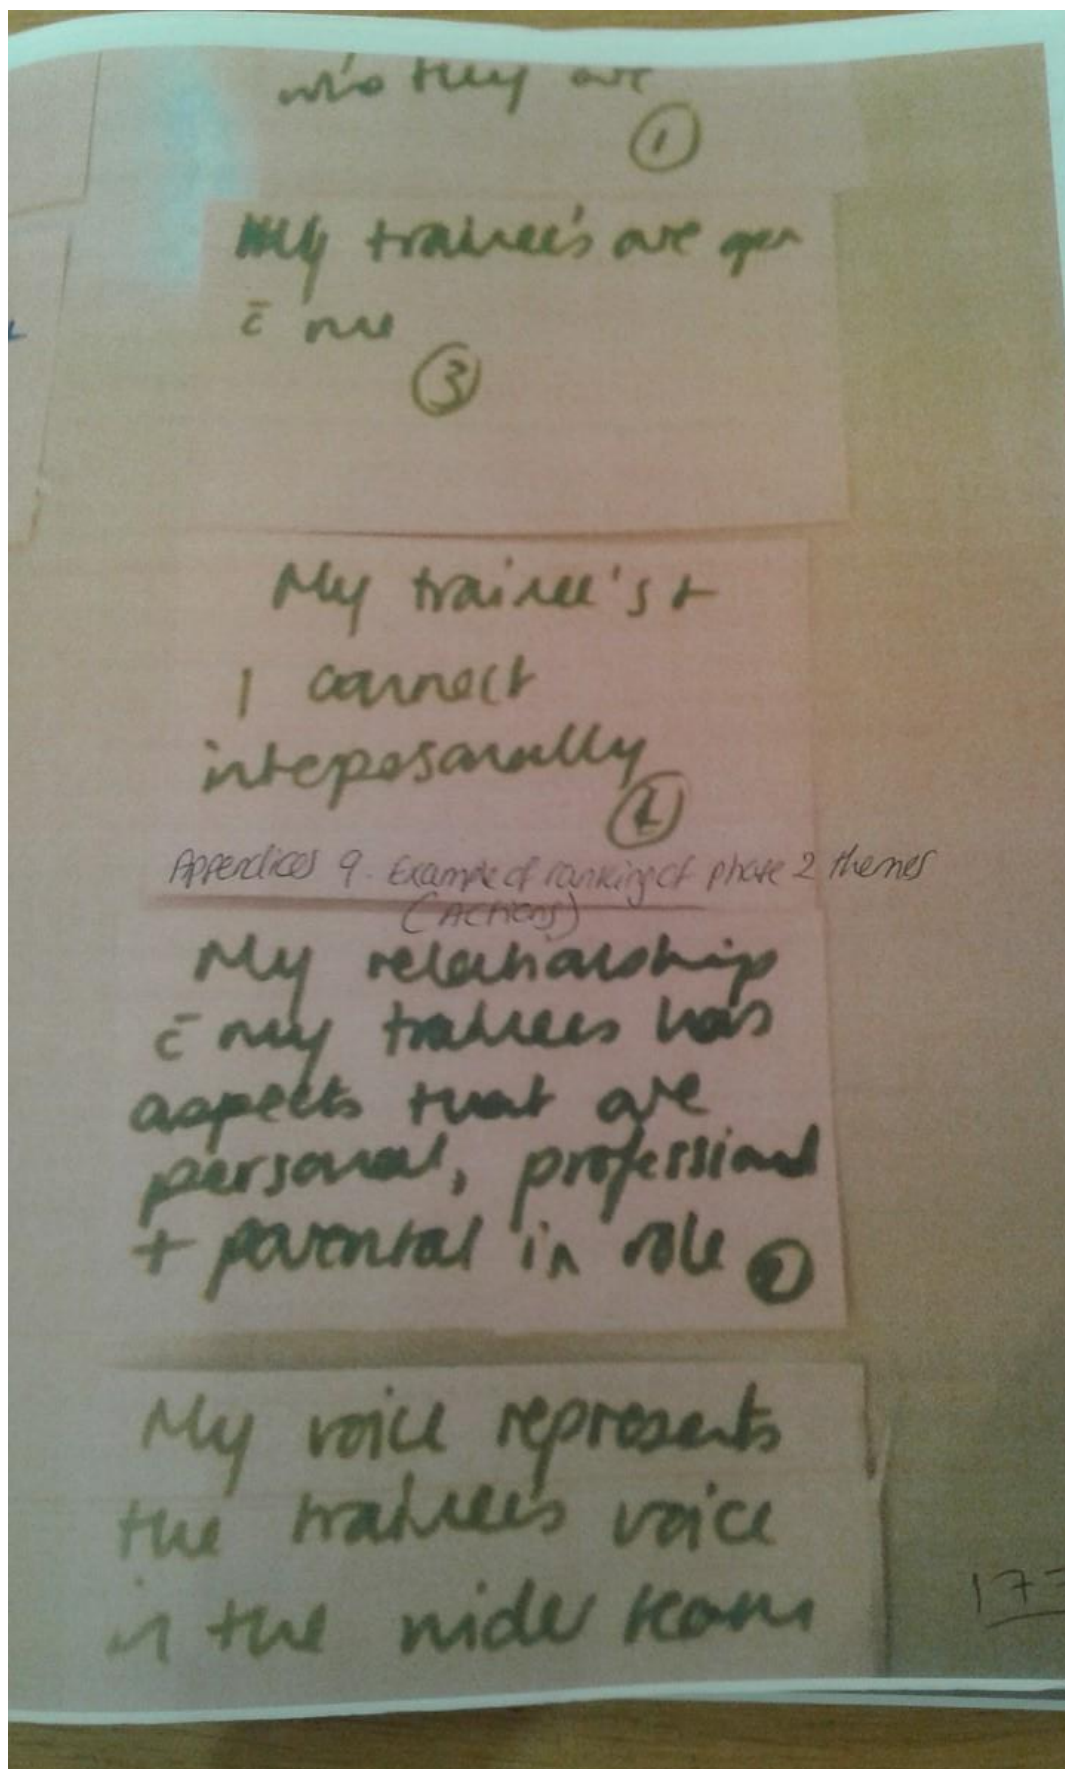 who they are
1
My trainee's are open
c̄ me
3
My trainee's +
I connect
inteposonally
Appendices 9. Example of ranking of phase 2 themes
(Actions)
My relationship
c̄ my trainees has
aspects that are
personal, professional
+ parental in role 2
My voice represents
the trainee's voice
in the wider team